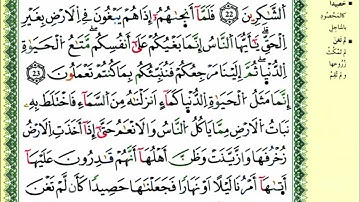 ٱلشَّٰكِرِينَ ٢٢ فَلَمَّآ أَنجَىٰهُمُۥٓ إِذَا هُمْ يَبْغُونَ فِے اِ۬لَارْضِ بِغَيْرِ
اِ۬لْحَقِّۖ يَٰٓأَيُّهَا اَ۬لنَّاسُ إِنَّمَا بَغْيُكُمْ عَلَىٰٓ أَنفُسِكُمۖ مَّتَٰعُ اُ۬لْحَيَوٰةِ
اِ۬لدُّنْيَاۖ ثُمَّ إِلَيْنَا مَرْجِعُكُمْ فَنُنَبِّئُكُم بِمَا كُنتُمْ تَعْمَلُونَۖ ٢٣
إِنَّمَا مَثَلُ اُ۬لْحَيَوٰةِ اِ۬لدُّنْيَا كَمَآءٍ اَنزَلْنَٰهُ مِنَ اَ۬لسَّمَآءِ فَاخْتَلَطَ بِهِۦ
نَبَاتُ اُ۬لَارْضِ مِمَّا يَاكُلُ اُ۬لنَّاسُ وَالَانْعَٰمُ حَتَّىٰٓ إِذَآ أَخَذَتِ اِ۬لَارْضُ
زُخْرُفَهَا وَازَّيَّنَتْ وَظَنَّ أَهْلُهَآ أَنَّهُمْ قَٰدِرُونَ عَلَيْهَآ
أَتَىٰهَآ أَمْرُنَا لَيْلًا اَوْ نَهَارًا فَجَعَلْنَٰهَا حَصِيدًا كَأَن لَّمْ تَغْنَ
حَصِيدًا
كالمحصود
بالمناجل
لم تغن
لم تمكث
زروعها
ولم تقم